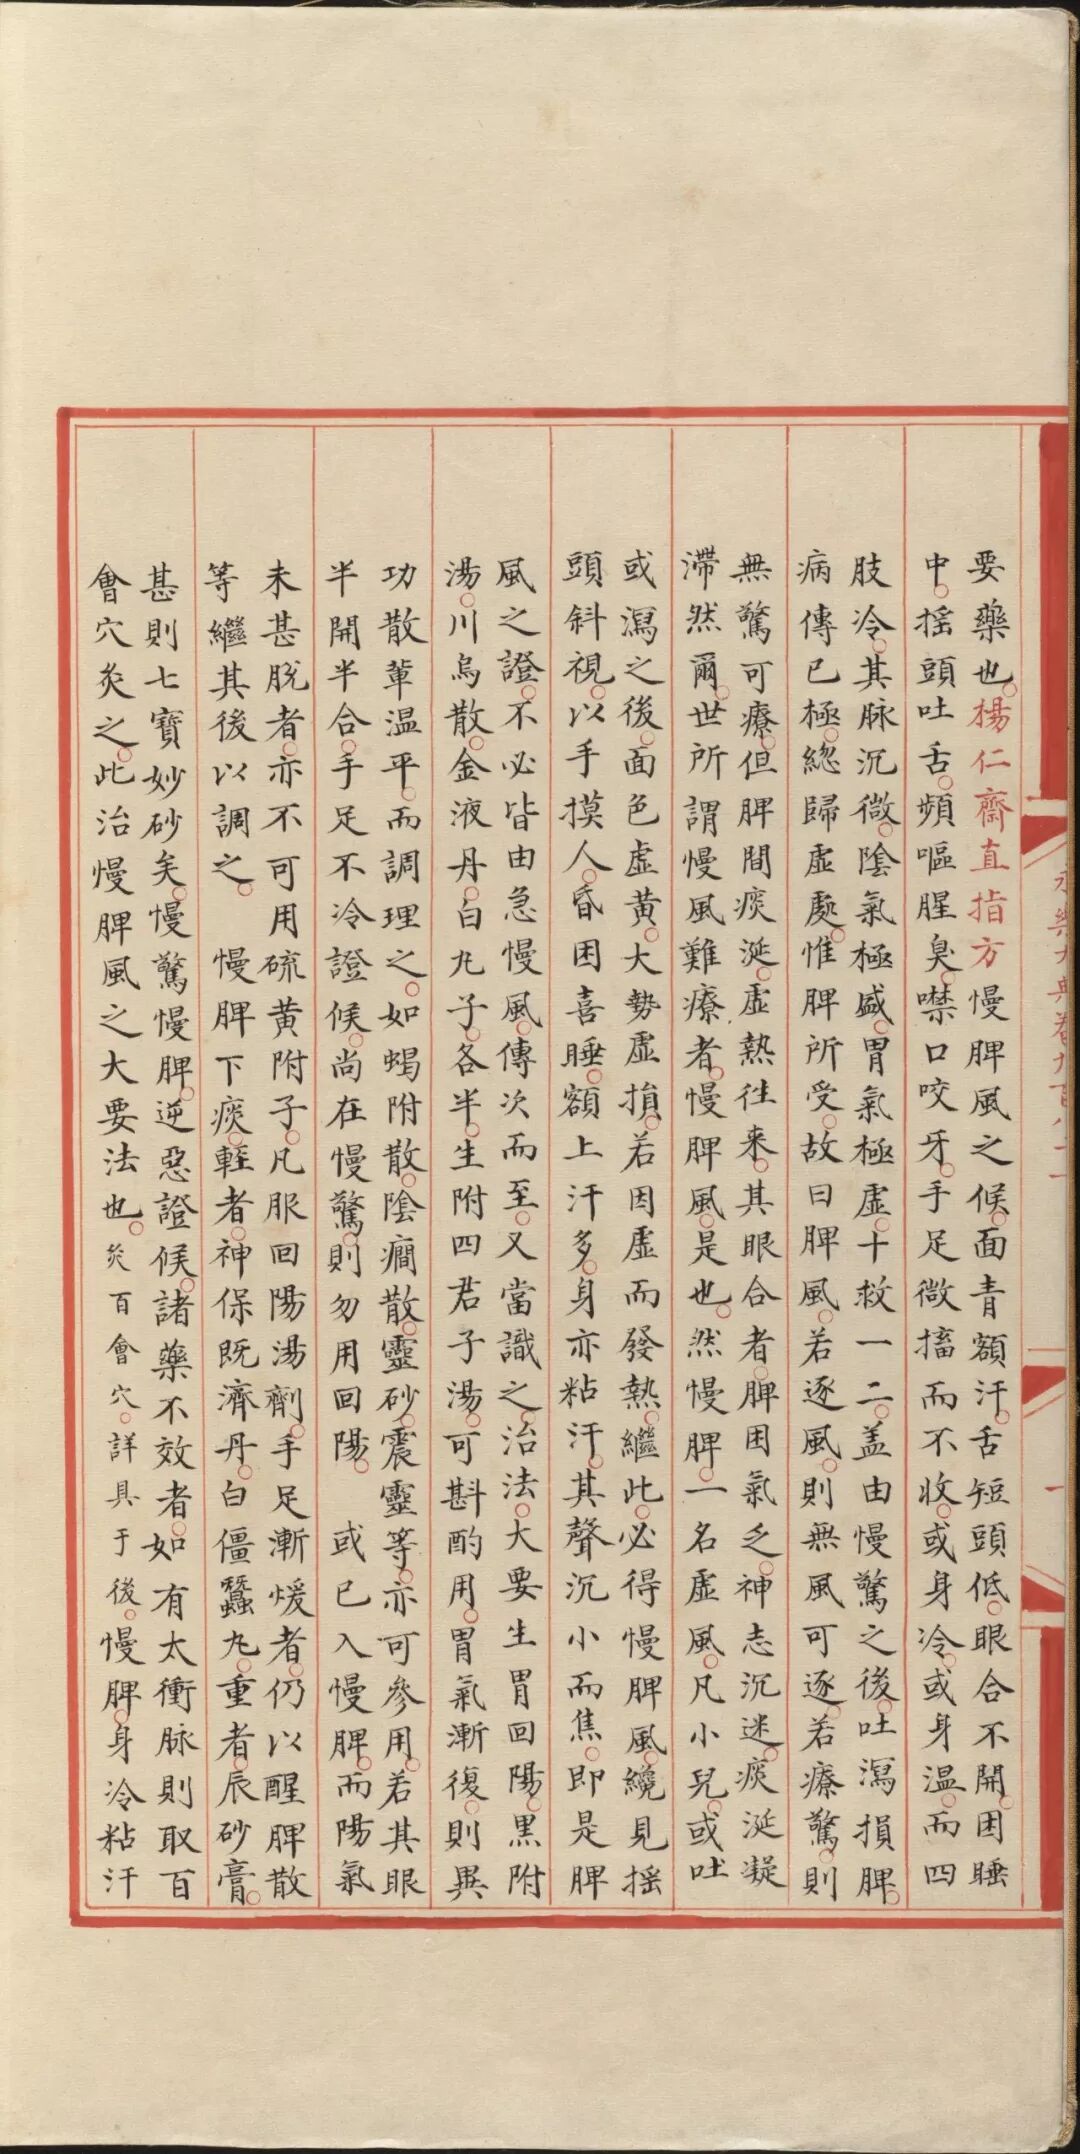 要藥也。楊仁齋直指方慢脾風之候。面青額汗。舌短頭低。眼合不開。困睡
中。揺頭吐舌。頻嘔腥臭。噤口咬牙。手足微搐而不收。或身冷。或身温。而四
肢冷。其脉沉微。陰氣極盛。胃氣極虛。十救一二。盖由慢驚之後。吐瀉損脾。
病傳已極。緫歸虛處。惟脾所受。故曰脾風。若逐風。則無風可逐。若療驚。則
無驚可療。但脾間痰涎。虛熱徃来。其眼合者。脾困氣乏。神志沉迷。痰涎凝
滯然爾。世所謂慢風難療者。慢脾風。是也。然慢脾。一名虛風。凡小兒。或吐
或瀉之後。面色虛黄。大勢虛損。若因虛而發熱。繼此。必得慢脾風。纔見揺
頭斜視。以手摸人。昏困喜睡。額上汗多。身亦粘汗。其聲沉小而焦。即是脾
風之證。不必皆由急慢風。傳次而至。又當識之。治法。大要生胃回陽。黒附
湯。川烏散。金液丹。白丸子。各半。生附四君子湯。可斟酌用。胃氣漸復。則異
功散輩温平。而調理之。如蝎附散。陰癇散。靈砂。震靈等。亦可參用。若其眼
半開半合。手足不冷證候。尚在慢驚。則勿用回陽。 或已入慢脾。而陽氣
未甚脫者。亦不可用硫黄附子。凡服回陽湯劑。手足漸煖者。仍以醒脾散
等繼其後以調之。 慢脾下痰。輕者。神保既濟丹。白僵蠶丸。重者。辰砂膏。
甚則七寶妙砂矣。慢驚慢脾。逆惡證候。諸藥不效者。如有太衝脉則取百
會穴灸之。此治慢脾風之大要法也。灸百會穴。詳具于後。慢脾。身冷粘汗